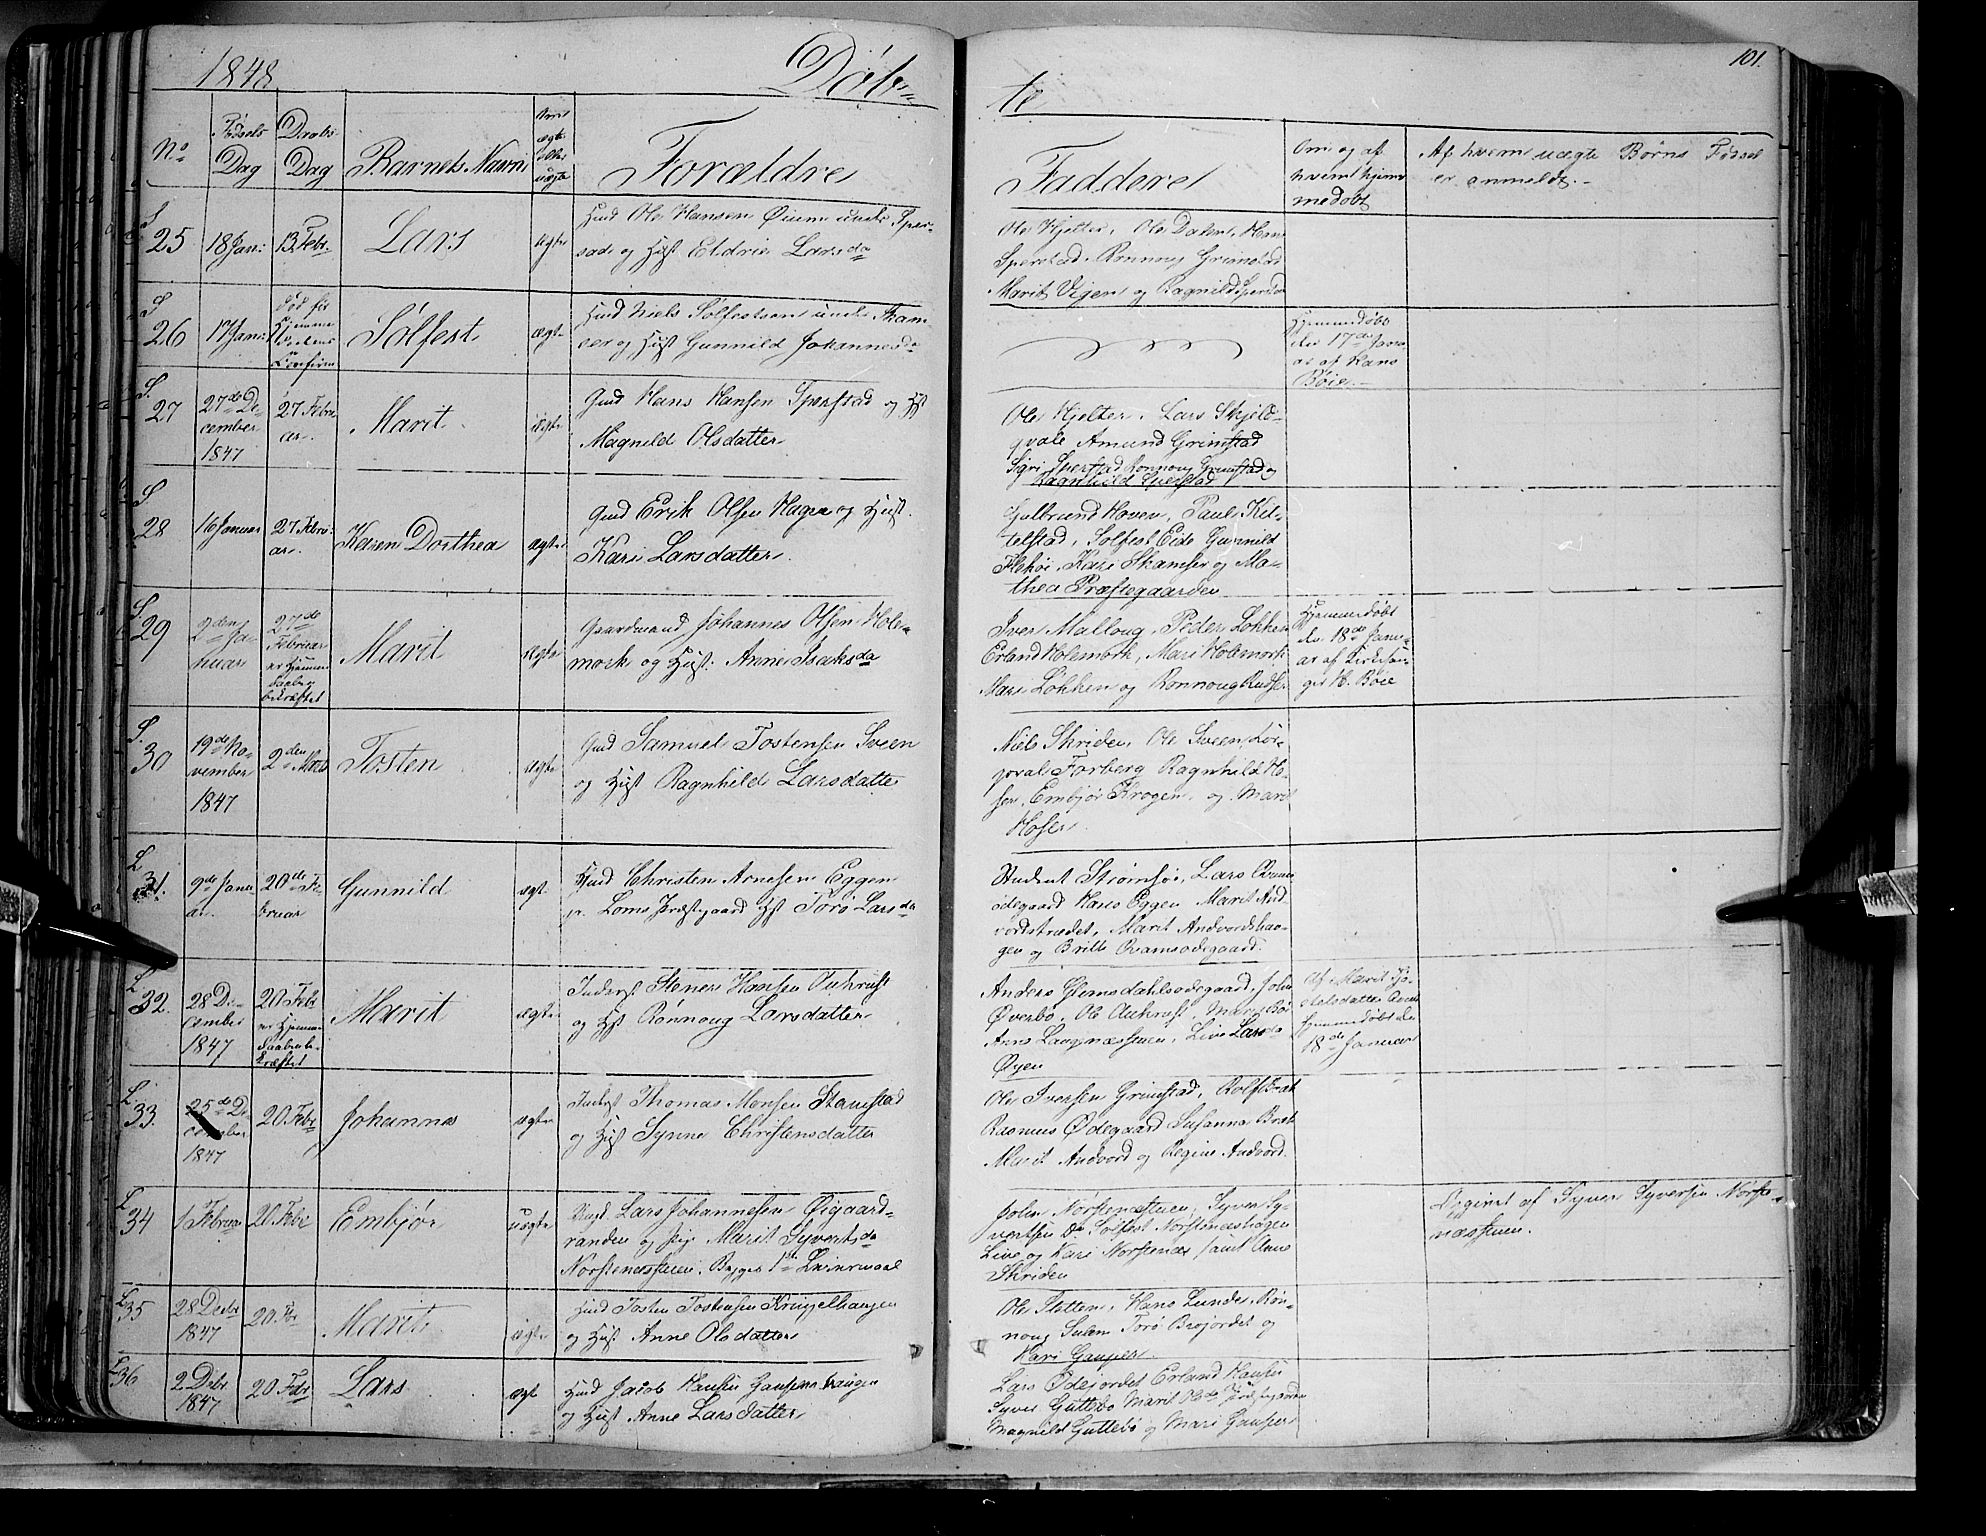 1848
Døb=
te
101.
No
Fødsels Dag
Daabs Dag
Barnets Navn
Om ægte eller uægte
Forældre
Faddere
Om og af hvem hjemmedøbt
Af hvem uægte Børns Fødsel
er anmeldt.
S
25
18 Jan:
13 Febr
Lars
ægte
Huusmd Ole Hansen Øium under Sper-
stad og Hust Eldrie Larsda
Ole Hjelter, Ole Dalen, Hans
Sperstad, Rønnoug Grimstad
Marit Vigen og Ragnild Sperstad
S
26
17 Januar
død før
Hjemme
Daabens
Confirm
Sølfest
ægte
Huusmd Niels Sølfestsen under Skam-
ser og Hust Gunnild Johannesda
Hjemmedøbt
den 17de Janu-
ar af Hans
Bøie.
S.
27
27de De-
cember
1847
27 Febru-
ar.
Marit
ægte
Gmd Hans Hansen Sperstad og Hust
Magnild Olsdatter
Ole Hjelter, Lars Skjeld-
qvale Amund Grimstad
Sigri Sperstad Rønnoug Grimstad og
Ragnhild Sperstad
S
28
16 Januar
27 Febru-
ar.
Karen Dorthea
ægte
Gmd Erik Olsen Hagen og Hust.
Kari Larsdatter.
Gulbrand Hoven, Paul Kit-
telstad, Sølfest Eide Gunnild
Flekøi, Kari Skamser og Ma-
thea Præstegaarden
S.
29
2den Ja-
nuar
27de
Februar
er Hjemme
Daaben
bekræftet
Marit
ægte
Gaardmand Johannes Olsen Hole-
mork og Hust: Anne Isaksda
Iver Malloug, Peder Løkken
Erland Holemork, Mari Holemork
Mari Løkken og Rønnoug
Hjemmedøbt
den 18de Janu-
ar af Kirkesan-
ger H. Bøie
S.
30
19de No-
vember
1847
2den Marts
Tosten
ægte
Gmd Samuel Tostensen Sveen
og Hust Ragnhild Larsdatter
Niels Skriden, Ole Sveen, Kor-
poral Forberg Ragnhild Ho-
sen, Embjør Krogen, og Marit
Hosen.
L
31.
9de Janu-
ar.
20de Fe-
bruar
Gunnild
ægte
Huusmd Christen Arnesen Eggen
p. Loms Præstegaard Hst Torø Larsda
Student Strømsøe, Lars Qvams-
ødegaard Hans Eggen Marit And-
vordstrædet, Marit Andvordshau-
gen og Britte Qvamsødegaard.
L
32.
28 De-
cember
1847
20 Febr
er Hjemme-
Daaben be-
kræftet
Marit
ægte
Inderst Stener Hansen Aukrust
og Hst Rønnoug Larsdatter
Anders Glemsdahlsødegaard, John
Øverbø, Ole Aukrust, Mari Bøe
Anne Langnæsstuen, Live Larsda
Øyen
Af Marit Jo-
hnsdatter
hjemmedøbt den
18de Januar
L.
33.
25de De-
cember
1847
20 Febr
Johannes
ægte
Inderst Thomas Monsen Stamstad
og Hust Synne Christensdatter
Ole Iversen Grimstad, Rolf Bræk
Rasmus Ødegaard Susanna Bræk
Marit Andvord og Regine Andvord.
L
34
1 Februar
20 Febr
Embjør
uægte
Ungk. Lars Johannesen Øigaard-
randen og Pige Marit Syvertsda
Norstenæsstuen. Begges 1ste Leiermaal
John Norstenæsstuen, Syver Sy-
vertsen Do Solfest Norstenæshagen
Live og Kari Norstenæs samt Anne
Skriden
Angivet af Syver Syversen Norste-
næsstuen.
L
35
28 Decbr
1847
20 Febr
Marit
ægte
Huusmd Tosten Tostensen Kringelhaugen
og Hust Anne Olsdatter
Ole Sletten, Hans Lunde, Røn-
noug Sulem Torø Brøjordet og
Kari Gaupar.
L
36
2 Decbr
1847
20 Febr
Lars
ægte
Huusmd Jacob Hansen Gaupershaugen
og Hust Anne Larsdatter
Lars Ødejordet Erland Hansen
Syver Guttebø Marit Olsda Præstegaarden
Magnild Guttebø og Mari Gauper